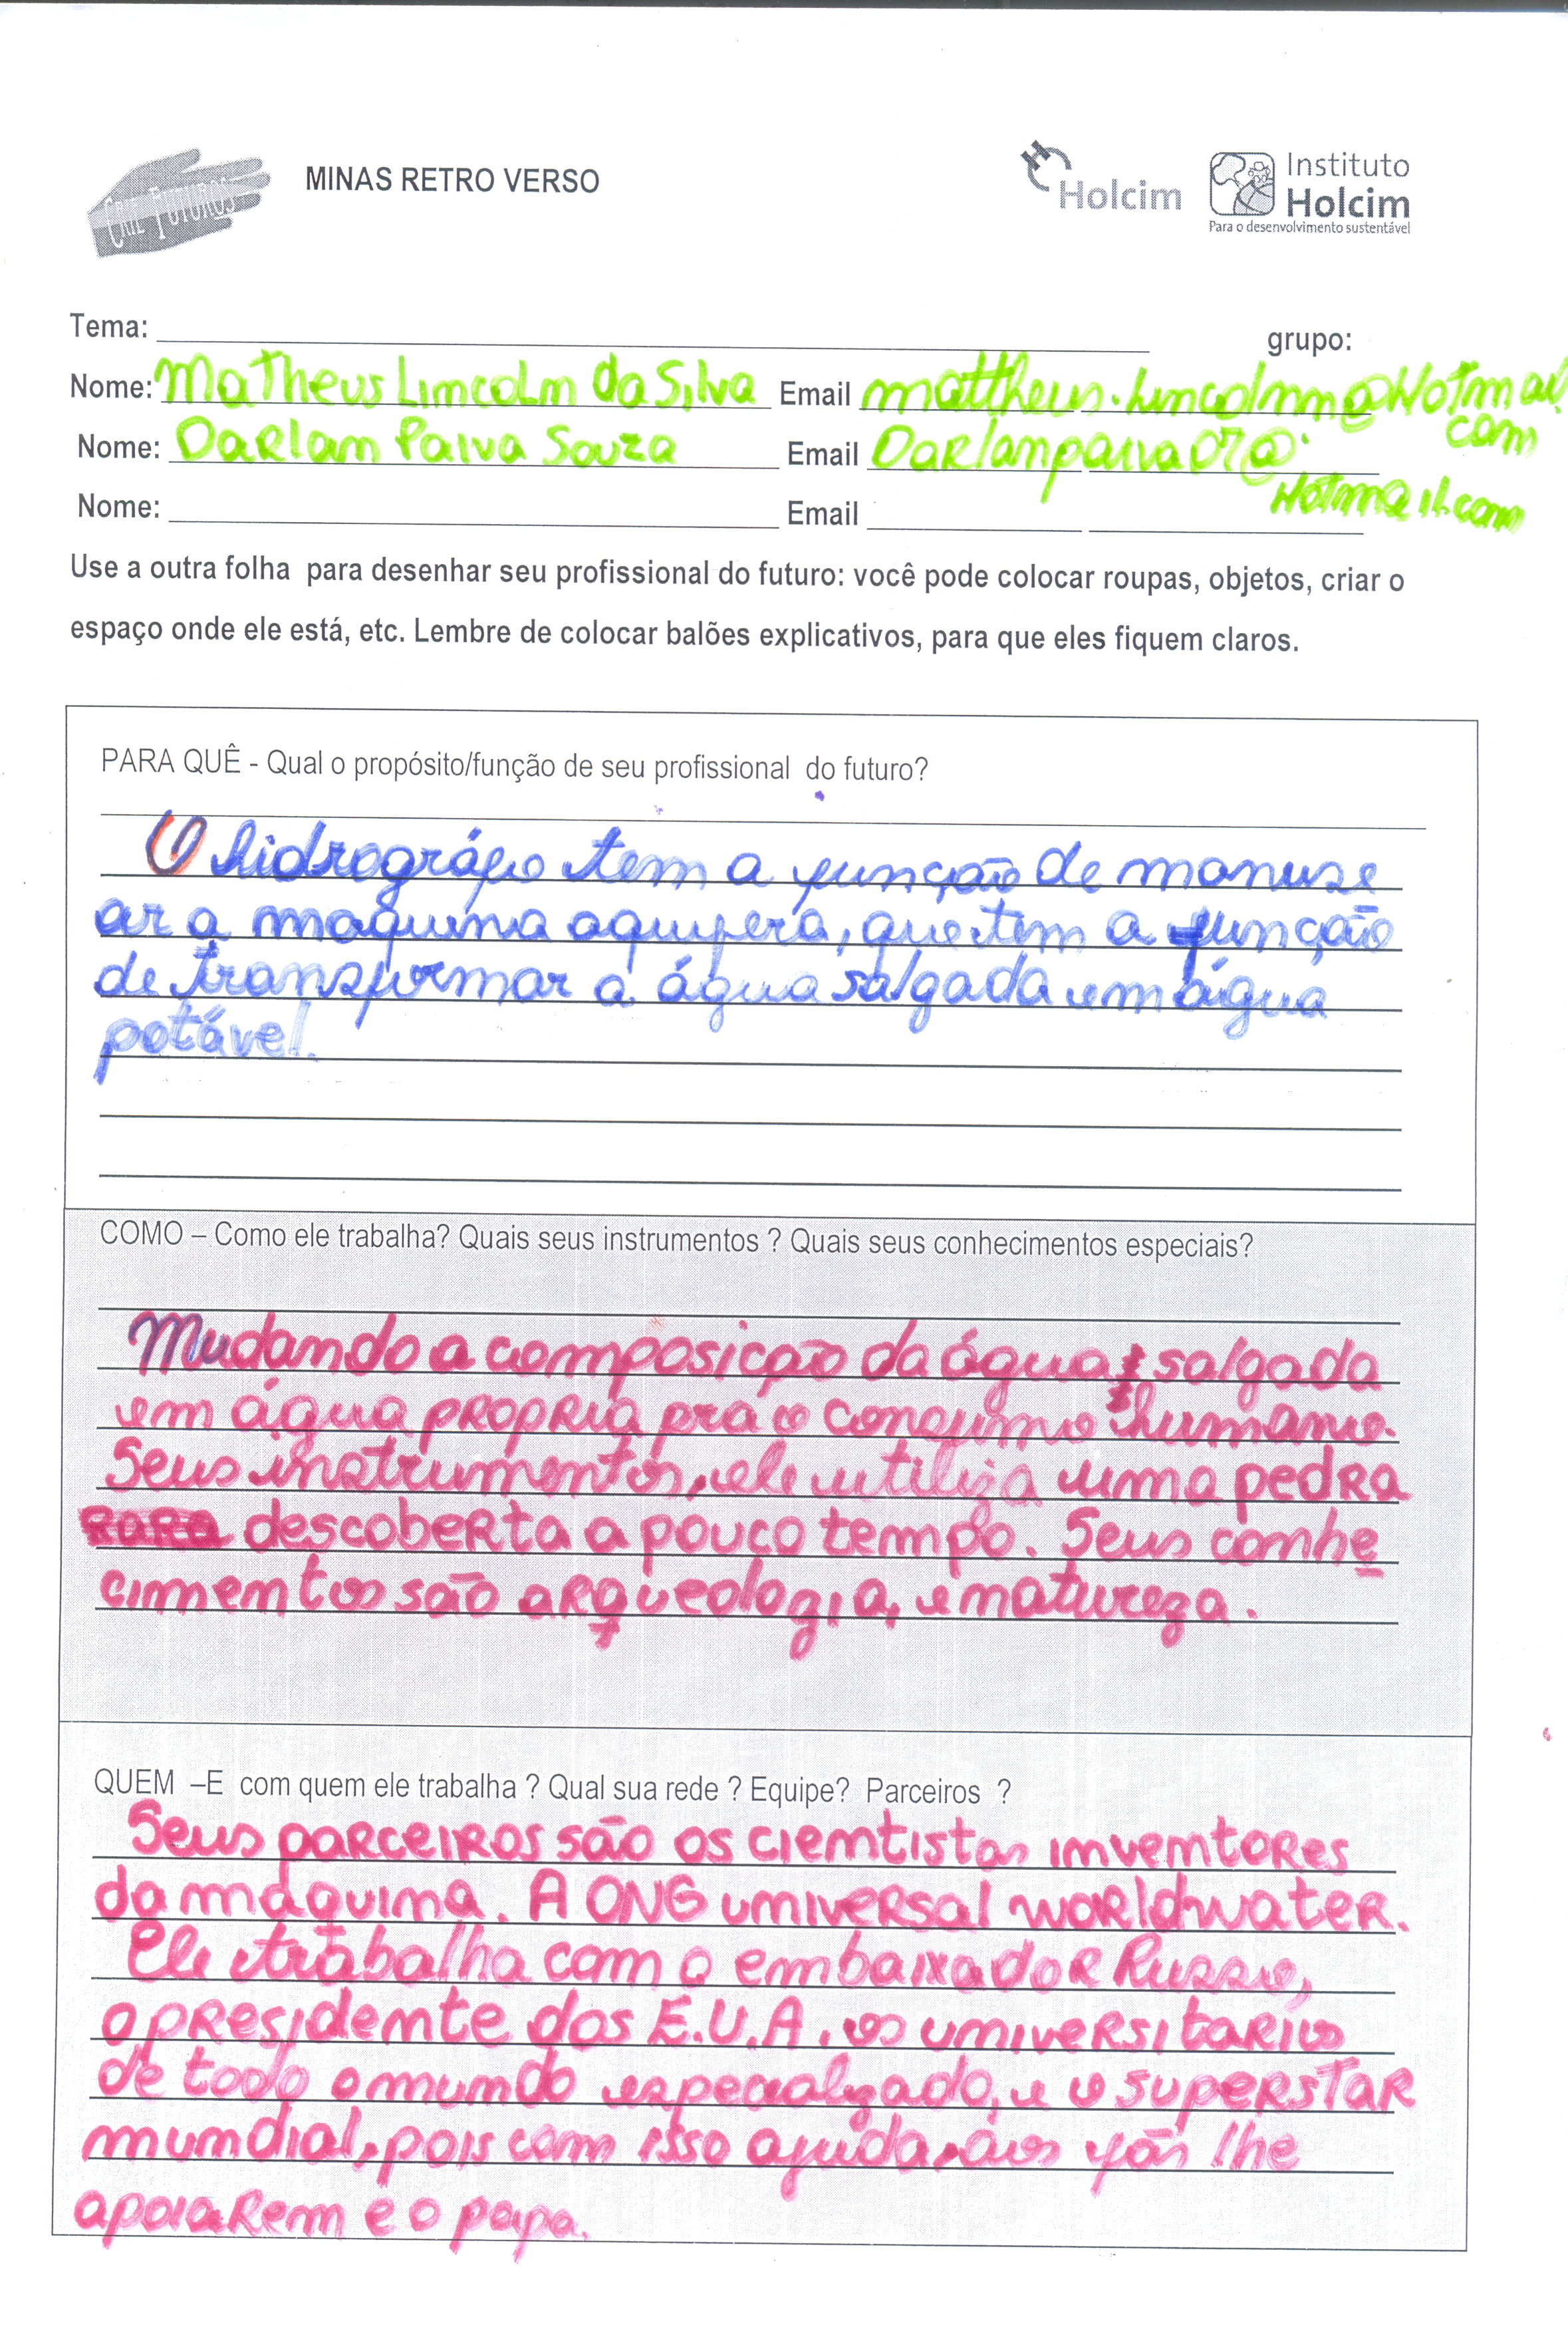 CRIE FUTUROS
MINAS RETRO VERSO
Holcim
Instituto
Holcim
Para o desenvolvimento sustentável
Tema:
grupo:
Nome: Matheus Limcolm da Silva Email mattheus.limcolmm@Hotmail.
com
Nome: Darlam Paiva Souza Email Darlampaiva07@
Hotmail.com
Nome: Email
Use a outra folha para desenhar seu profissional do futuro: você pode colocar roupas, objetos, criar o
espaço onde ele está, etc. Lembre de colocar balões explicativos, para que eles fiquem claros.
PARA QUÊ - Qual o propósito/função de seu profissional do futuro?
O hidrográfo tem a função de manuse
ar a maquina aquifera, que tem a função
de transformar a água salgada em água
potável.
COMO – Como ele trabalha? Quais seus instrumentos ? Quais seus conhecimentos especiais?
Mudando a composição da água salgada
em água propria pra o consumo humano.
Seus instrumentos, ele utiliza uma pedra
rara descoberta a pouco tempo. Seus conhe
cimentos são arqueologia, e natureza.
QUEM –E com quem ele trabalha ? Qual sua rede ? Equipe? Parceiros ?
Seus parceiros são os cientistas inventores
da máquina. A ONG universal worldwater.
Ele trabalha com o embaixador Russo,
o presidente dos E.U.A, os universitarios
de todo o mundo especialzado, e o superstar
mundial, pois com isso ajuda, aos fãs lhe
apoiarem e o papa.